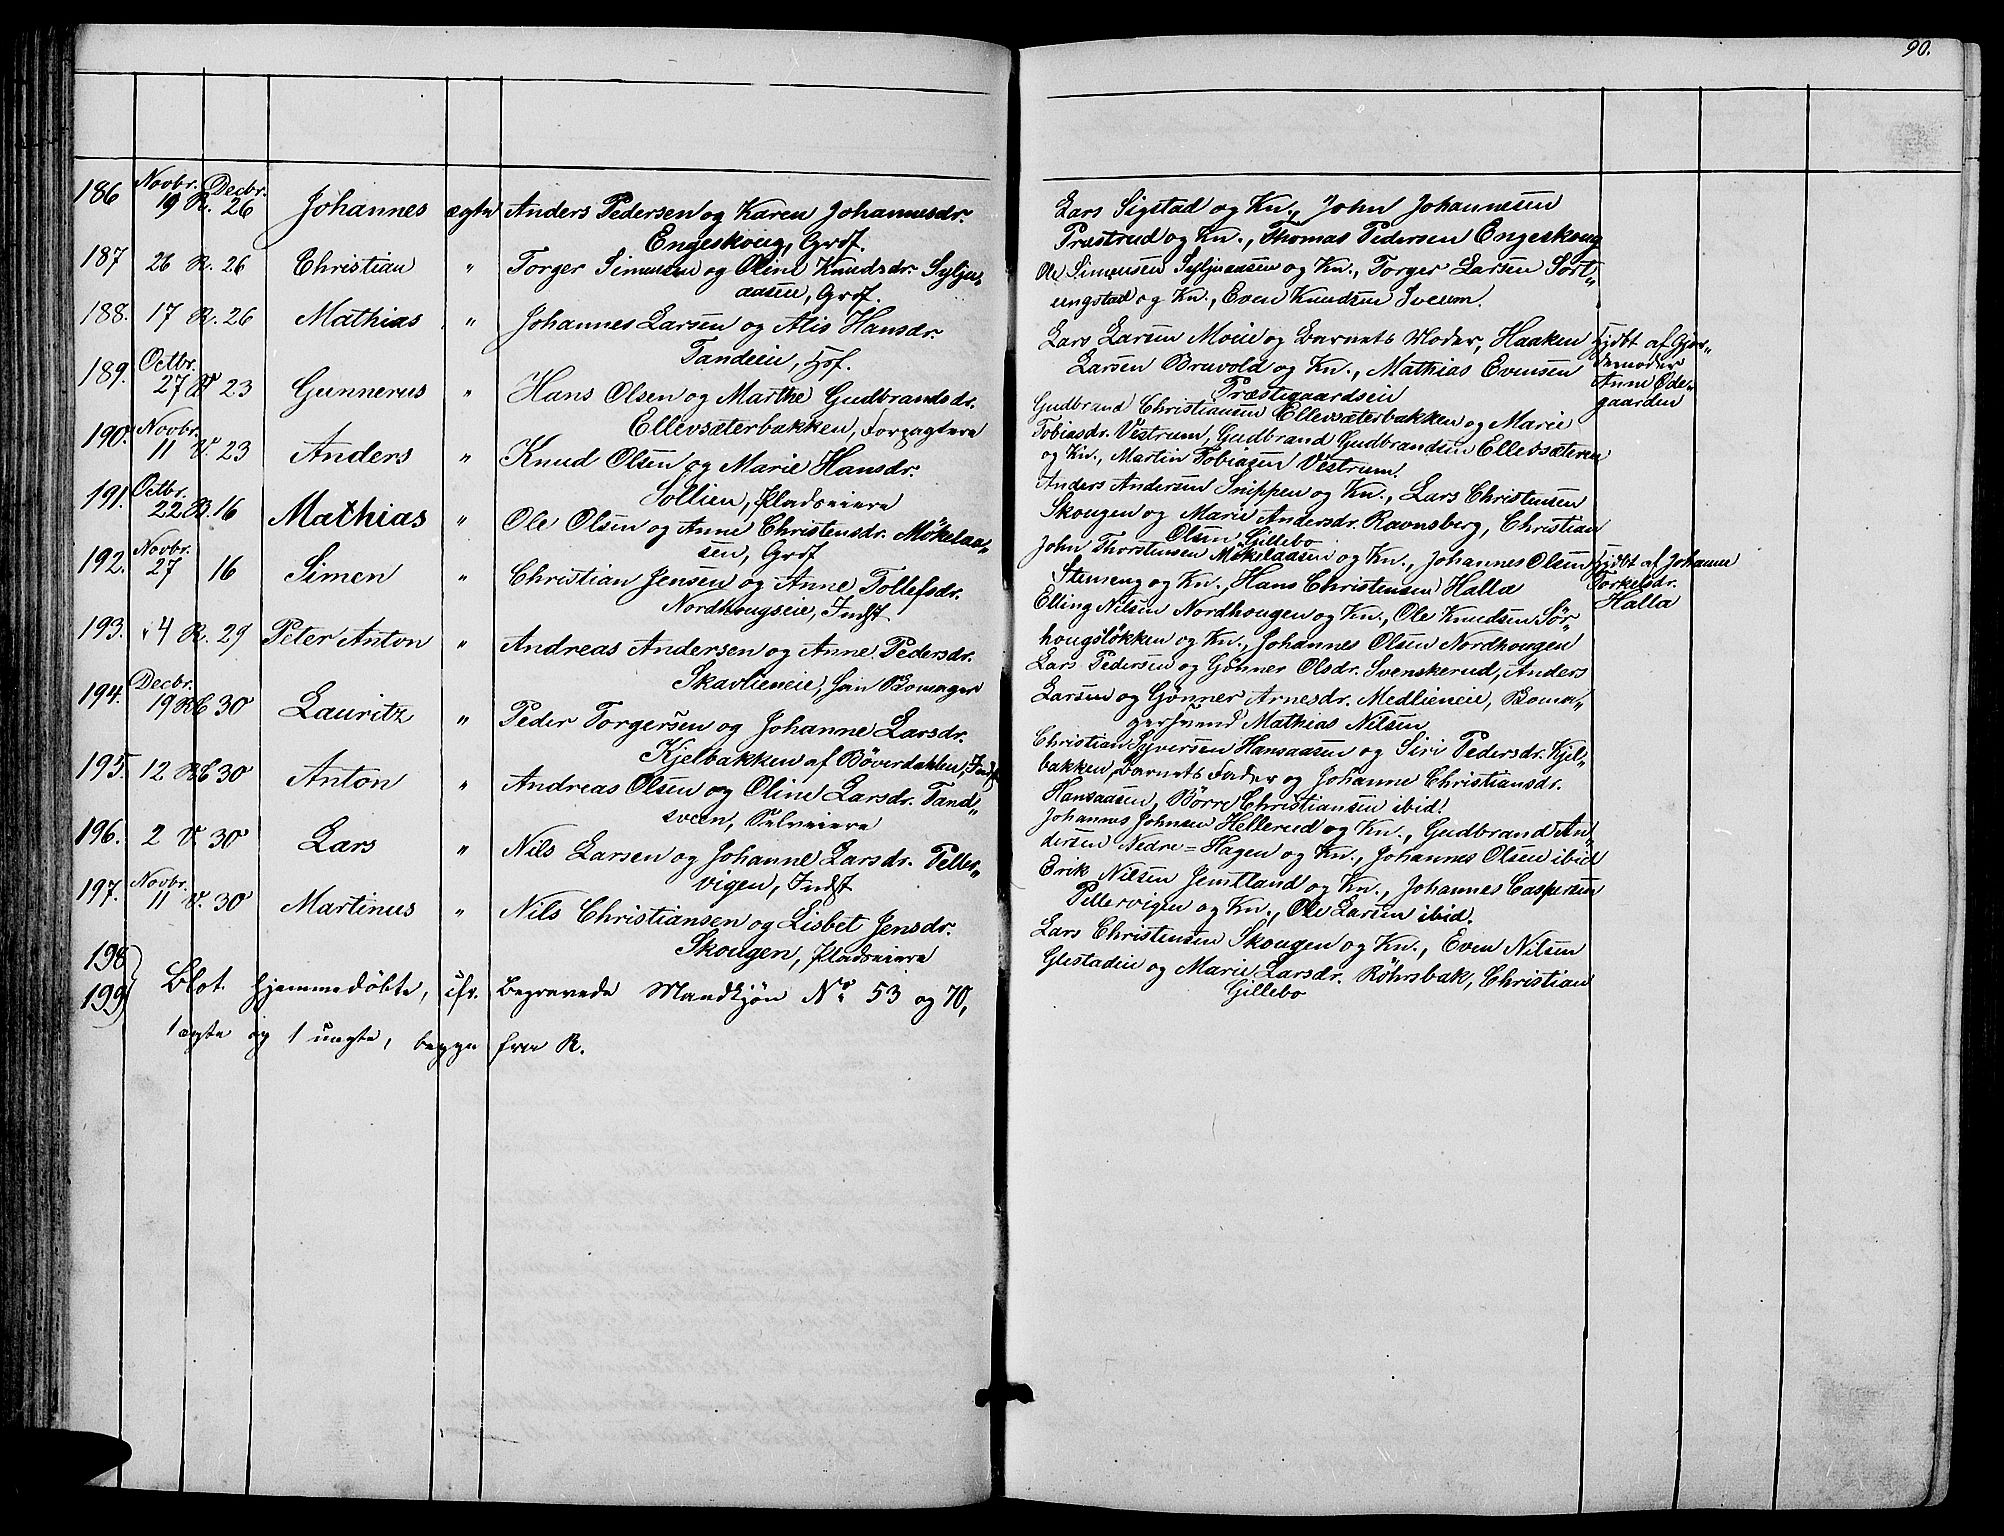 90.
186 Novbr. 19 R. Decbr. 26 Johannes ægte Anders Pedersen og Karen Johannesdr.
Engeskoug, Grdf.
187 26 R. 26 Christian " Torger Simensen og Oline Knudsdr. Sylju„
aasen, Grdf.
188. 17 R. 26 Mathias " Johannes Larsen og Alis Hansdr.
Tandeie, Hsf.
189. Octbr. 27 V 23 Gunnerus " Hans Olsen og Marthe Gudbrandsdr.
Ellevsæterbakken, Forpagtere
190. Novbr. 11 V. 23 Anders " Knud Olsen og Marie Hansdr.
Sollien, Pladseiere
191. Octbr. 22. B. 16 Mathias " Ole Olsen og Anne Christensdr. Mökelaa„
sen, Grdf
192. Novbr. 27 16 Simen " Christian Jensen og Anne Tollefsdr.
Nordhougseie, Indst
193. 4 R. 29 Peter Anton " Andreas Andersen og Anne Pedersdr.
Skavlieneie, Bomager
194. Decbr. 19 30 Lauritz " Peder Torgersen og Johanne Larsdr.
Kjelbakken af Böverdahlen, Indst
195. 12 30 Anton " Andreas Olsen og Oline Larsdr. Tand„
sveen, Selveiere
196. 2 V. 30 Lars " Nils Larsen og Johanne Larsdr. Peller„
vigen, Indst
197. Novbr. 11 V. 30 Martinus " Nils Christiansen og Lisbet Jensdr.
Skougen, Pladseiere
198
199 Blot hjemmedöbte, cfr. Begravede Mandkjön No. 53 og 70,
1 ægte og 1 uægte, begge fra R.
Lars Sigstad og Kn., John Johannesen
Præstrud og Kn., Thomas Pedersen Engeskoug
Ole Simensen Syljuaasen og Kn., Torger Larsen Sort„
ungstad og Kn., Even Knudsen Sveum.
Lars Larsen Moeie og Barnets Moder, Haaken
Larsen Bruvold og Kn., Mathias Evensen
Præstegaardseie
Hjdt af Gjor„
demoder
Anne Öde„
gaarden
Gudbrand Christiansen Ellevsæterbakken og Marie
Tobiasdr. Vestrum, Gudbrand Gudbrandsen Ellevsæteren
og Kn., Martin Tobiasen Vestrum.
Anders Andersen Snippen og Kn., Lars Christensen
Skougen og Marie Andersdr. Ravnsberg, Christian
Olsen Gillebo
John Thorstensen Mökelaasen og Kn., Johannes Olsen
Stenseng og Kn., Hans Christensen Halla
Hjdt af Johanne
Torkelsdr.
Halla
Elling Nilsen Nordhougen og Kn., Ole Knudsen Sör„
hougslökken og Kn., Johannes Olsen Nordhougen
Lars Pedersen og Gönner Olsdr. Svenskerud, Anders
Larsen og Gönner Arnesdr. Medlieneie, Boma„
gersvend Mathias Nilsen
Christian Syversen Hansaasen og Siri Pedersdr. Kjel„
bakken, Barnets Fader og Johanne Christiansdr.
Hansaasen, Börre Christiansen ibid.
Johannes Johnsen Hellerud og Kn., Gudbrand An„
dersen Nedre=Hagen og Kn., Johannes Olsen ibid
Erik Nilsen Jemtland og Kn., Johannes Caspersen
Pellervigen og Kn., Ole Larsen ibid.
Lars Christensen Skougen og Kn., Even Nilsen
Glestadeie og Marie Larsdr. Röhrsbak, Christian
Gillebo